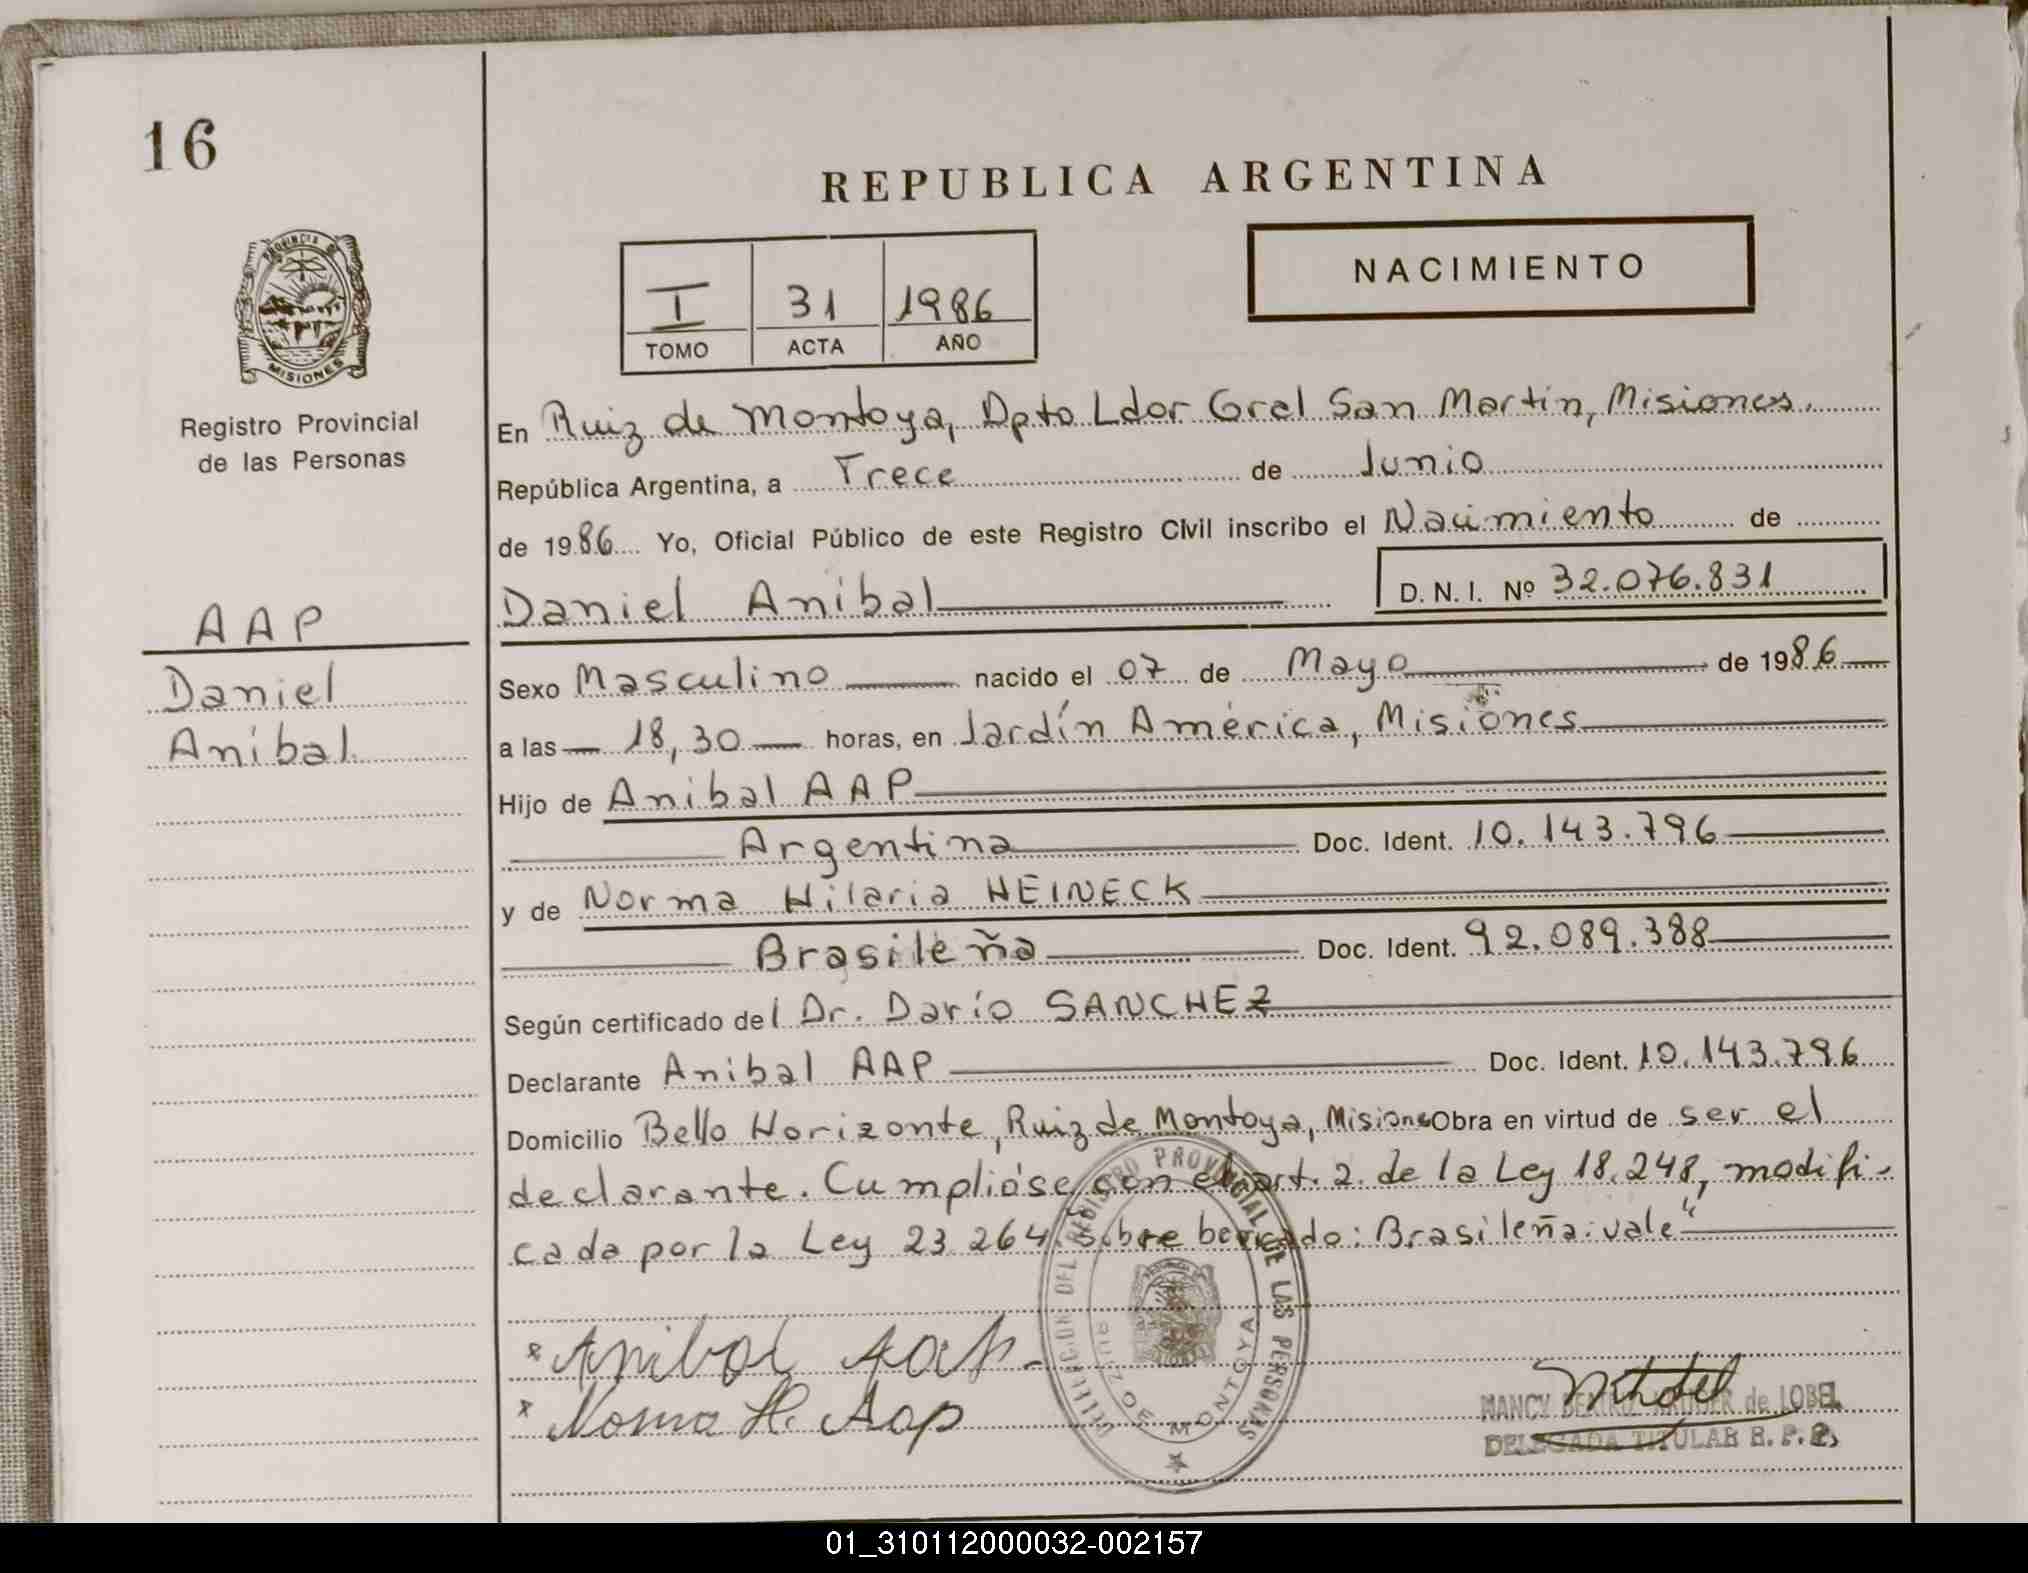 16
REPUBLICA ARGENTINA
NACIMIENTO
I 31 1986
TOMO ACTA AÑO
PROVINCIA DE
MISIONES
Registro Provincial
de las Personas
AAP
Daniel
Anibal
En Ruiz de Montoya, Dpto Ldor Gral San Martín, Misiones.
República Argentina, a Trece de Junio
de 1986 Yo, Oficial Público de este Registro Civil inscribo el Nacimiento de
Daniel Anibal D. N. I. Nº 32.076.831
Sexo Masculino nacido el 07 de Mayo de 1986
a las 18,30 horas, en Jardín América, Misiones
Hijo de Anibal AAP
Argentina Doc. Ident. 10.143.796
y de Norma Hilaria HEINECK
Brasileña Doc. Ident. 92.089.388
Según certificado del Dr. Darío SANCHEZ
Declarante Anibal AAP Doc. Ident. 10.143.796
Domicilio Bello Horizonte, Ruiz de Montoya, Misiones Obra en virtud de ser el
declarante. Cumplióse con el art. 2. de la Ley 18.248, modifi-
cada por la Ley 23 264 "Sobre borrado: Brasileña: vale"
Anibal Aap
Norma H. Aap
DELEGACION DEL REGISTRO PROVINCIAL DE LAS PERSONAS
RUIZ DE MONTOYA
NANCY BEATRIZ KRUGER de LOBEL
DELEGADA TITULAR R. P. P.
01_310112000032-002157